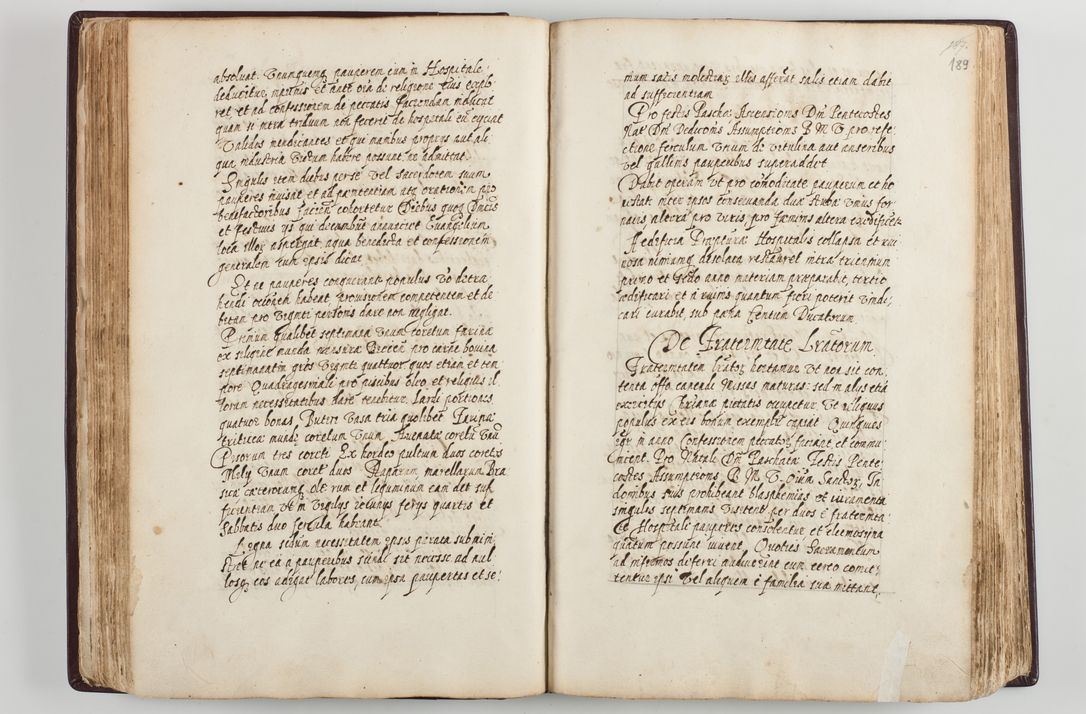 absoluat. Vnumquemq; pauperem cum in Hospitale
deducitur, inprimis et ante oia de religione eius explo
ret et ad confessionem de peccatis faciendam moueat
quam si intra triduum non fecerit de hospitali eu eyciat
Validos mendicantes et qui manibus proprys aut ali
qua industria victum habere possunt, ne admittat.
Singulis item diebus per se vel sacerdotem suum
pauperes inuisat et ad pœnitentiam atq; orationem pro
benefactoribus facien cohortetur Diebus quoq; Dnicis
et festiuis ys qui decumbut annunciet Euangelium
loca illor aspergat aqua benedicta et confessionem
generalem cum ipsis dicat
Et ne pauperes conquerantur populus vo detra
hendi occonem habeat, prouisionem competentem et de
bitam pro viginti personis dare non negligat.
Primum qualibet septimana vnum coretum farinæ
ex siligine munda mensuræ Vrcien pro carne bouina
septimanatim gros viginti quattuor quos etiam et tem
pore Quadragesimali pro piscibus oleo et reliquis il
lorum necessitatibus dare tenebitur. Lardi portiones
quatuor bonas. Butiri vasa tria quolibet Farinæ
triticæ mundæ coretum vnum Auenatæ coretu vnu
Pisorum tres coreti Ex hordeo pultum duos coretos
Mily vnum coret duos Raparum marellarum Bra
sicæ cæterorumq; ole rum et leguminum eam det suf
ficientiam vt in vigilys Ieiunys ferys quartis et
Sabbatis duo fercula habeant
Ligna secundum necessitatem ipsis paret subminis
tret ne ea a pauperibus scindi sit necesse ad nul
losq; eos adigat labores, cum ipsa paupertas et se:

187.
189
nium satis molestiar illis afferat salis etiam dabit
ad sufficientiam
Pro festis Paschæ Ascensionis Dni Pentecostes
Nat Dni Dedicationis Assumptionis B M V pro refe
ctione ferculum vnum de vitulina aut anseribus
vel gallinis pauperibus superaddet
Dabit operam vt pro comoditate pauperum et ho
nestate inter ipsos conseruanda duæ stubæ vnius for
nacis altera pro viris, pro fœminis altera exedificet
Aedificia Præpturæ Hospitalis collapsa et rui
nosa nimiumq; desolata restauret intra triennium
primo et secdo anno materiam præparabit, tertio
ædificari et a ruinis quantum fieri poterit vindi
cari curabit sub pœna Centum Ducatorum
De Fraternitate Lratorum
Fraternitatem lrator hortamur vt non sit con
tenta offo canendi Missas maturas: sed in alys etia
exercitys Chrianæ pietatis occupetur, vt reliquus
populus ex eis bonum exemplu capiat Quinquies
igr in anno Confessionem peccator faciant et commu
nicent. Pro Natali Dni Paschatæ Festis Pente
costes Assumptionis B M V Oium Sanctor, In
domibus suis prohibeant blasphemias et iuramenta
singulis septimanis visitent per duos e fraternita
te Hospitale pauperes consolentur et eleemosina
quantum possunt iuuent. Quoties Sacramentum
ad infirmos deferri audiuerint cum cereo comit
tentur ipsi vel aliquem e familia sua mittant,